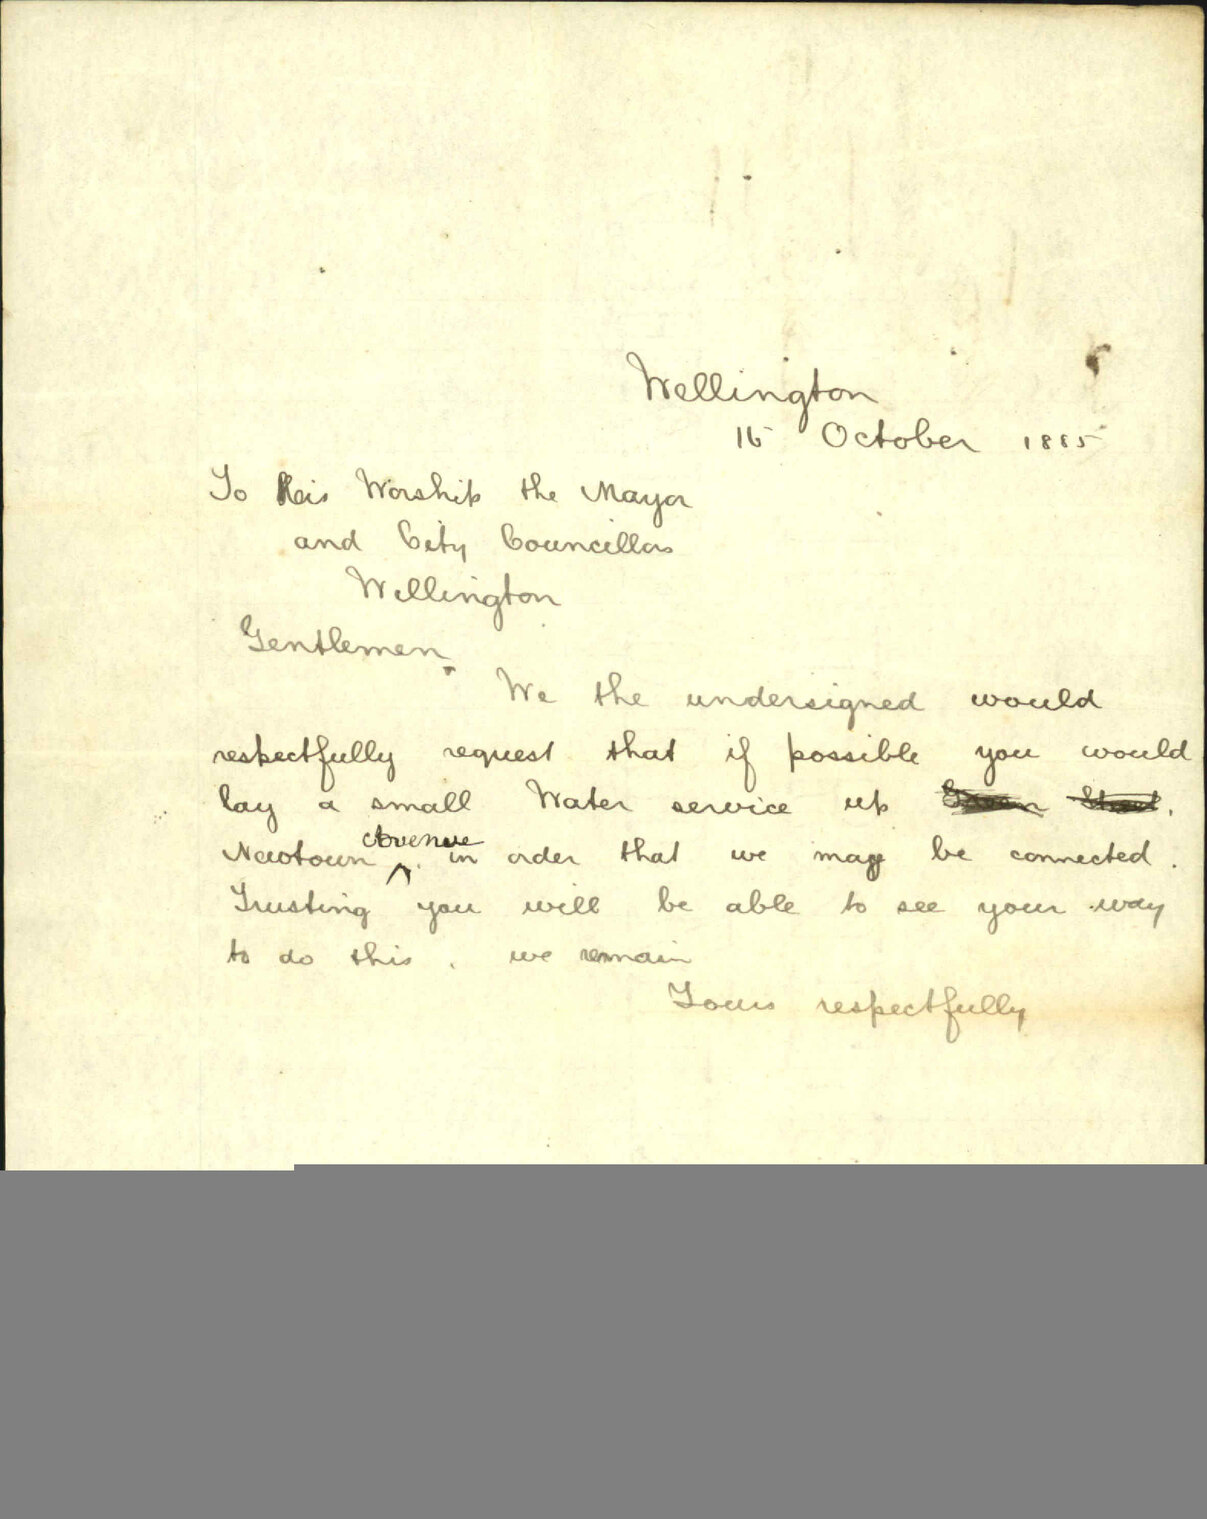 Wellington
16 October 1885
To His Worship the Mayor
and City Councillors
Wellington
Gentlemen
We the undersigned would
respectfully request that if possible you would
lay a small Water service up Green Street.
Newtown Avenue. in order that we may be connected.
Trusting you will be able to see your way
to do this. we remain
Yours respectfully